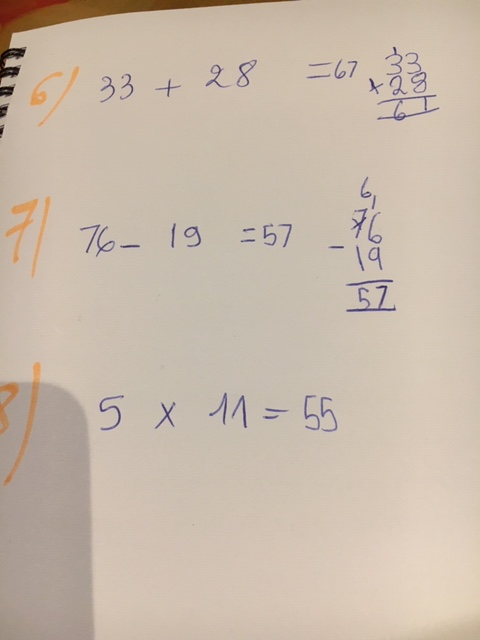 6) 33 + 28 = 67
1
33
× 28
61
7) 76 - 19 = 57
6 1
76
- 19
57
8) 5 × 11 = 55